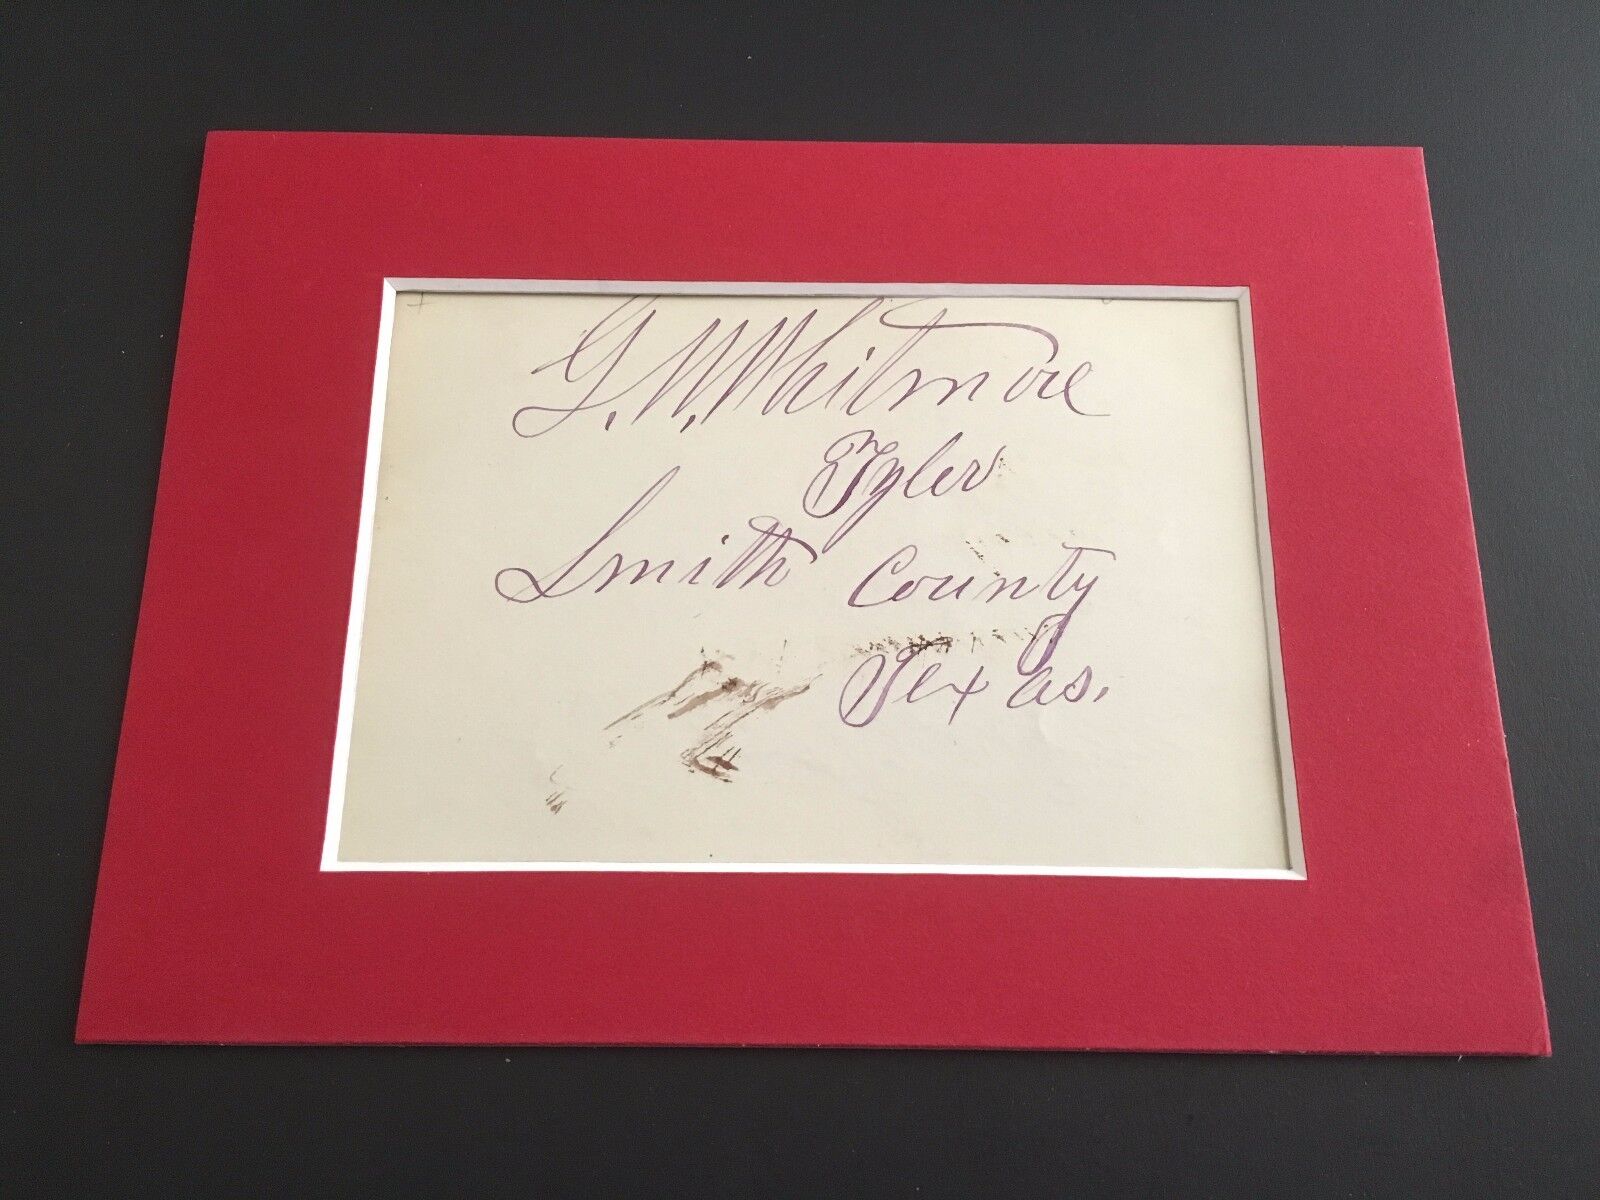 G. W. Whitmore
Tyler
Smith County
Texas.